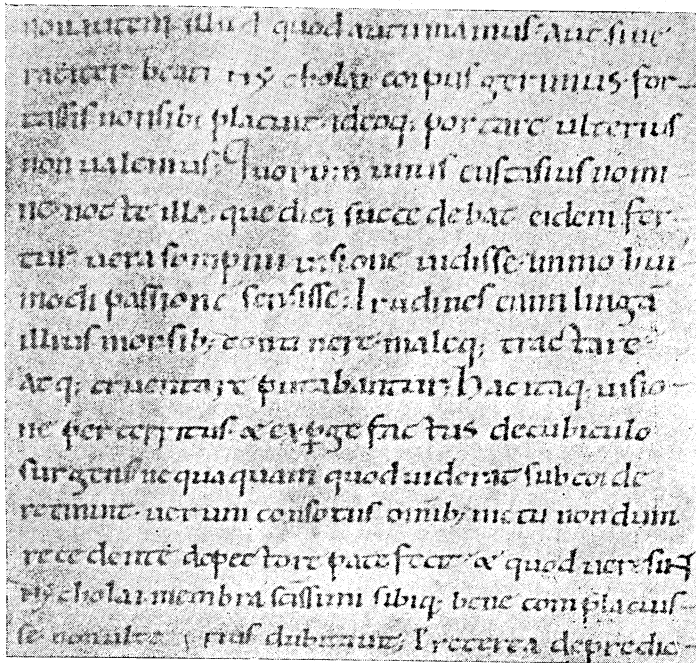 non autem illud quod autumamus. aut sine
raciter beati nycholai corpus gerimus. for-
tassis non sibi placuit. ideoq; portare ulterius
non ualemus. Quorum unus eustasius nomi-
ne. nocte illa. que diei succedebat eidem fer-
tur uera sompnii uisione uidisse. immo hui
modi passione sensisse. Irudines eum linguā
illius morsib; continere. maleq; tractare
atq; cruentare putabantur. Hac itaq; uisio-
ne perterritus & expgefactus de cubiculo
surgens. nequaquam quod uiderat sub corde
retinuit. uerum consortius omib; metu nondum
recedente de pectore patefecit. & quod uere sin̄
nycholai membra scissim sibiq; bene complacuis-
se dubitauit. Preterea depredic